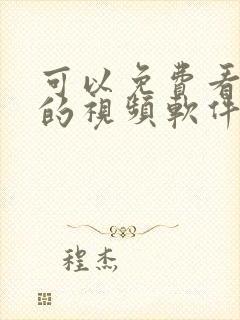 可以免費看
的視頻軟件
程杰